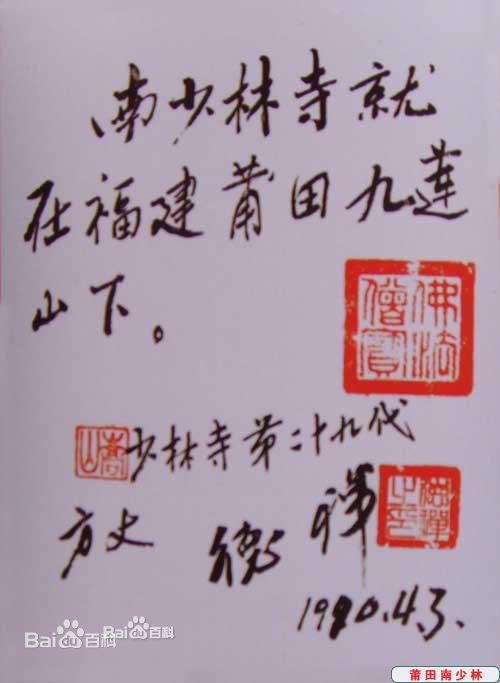 南少林寺就
在福建莆田九莲
山下。
佛法
僧寳
嵩山
少林寺第二十九代
方丈 德禅
德禪
之印
1990.4.3.
Bai百科
Bai百科
莆田南少林